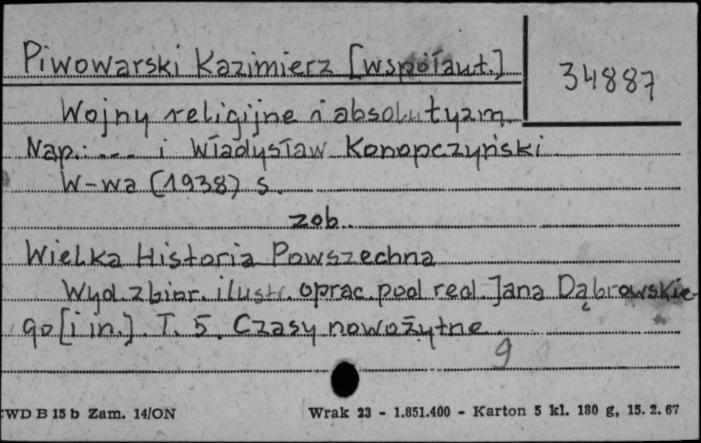 Piwowarski Kazimierz [współaut.]
34887
Wojny religijne i absolutyzm
Nap.: --- i Władysław Konopczyński
W-wa (1938) s.
zob.
Wielka Historia Powszechna
Wyd. zbior. ilustr. oprac. pod red. Jana Dąbrowskie-
go [i in.]. T. 5. Czasy nowożytne
9
WD B 15 b Zam. 14/ON
Wrak 23 - 1.851.400 - Karton 5 kl. 180 g, 15. 2. 67